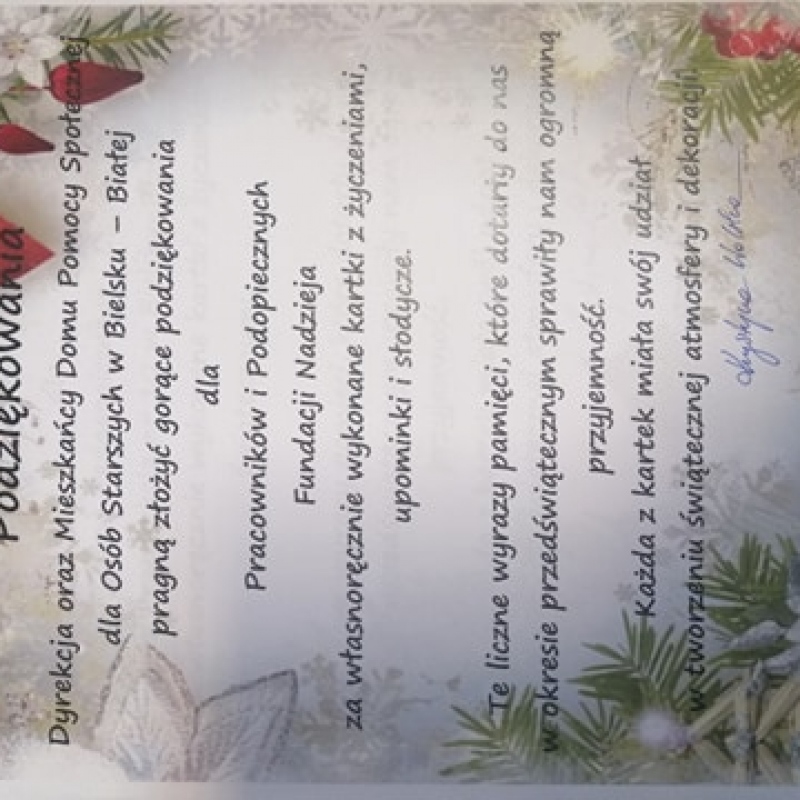 Podziękowania
Dyrekcja oraz Mieszkańcy Domu Pomocy Społecznej
dla Osób Starszych w Bielsku – Białej
pragną złożyć gorące podziękowania
dla
Pracowników i Podopiecznych
Fundacji Nadzieja
za własnoręcznie wykonane kartki z życzeniami,
upominki i słodycze.
Te liczne wyrazy pamięci, które dotarły do nas
w okresie przedświątecznym sprawiły nam ogromną
przyjemność.
Każda z kartek miała swój udział
w tworzeniu świątecznej atmosfery i dekoracji.